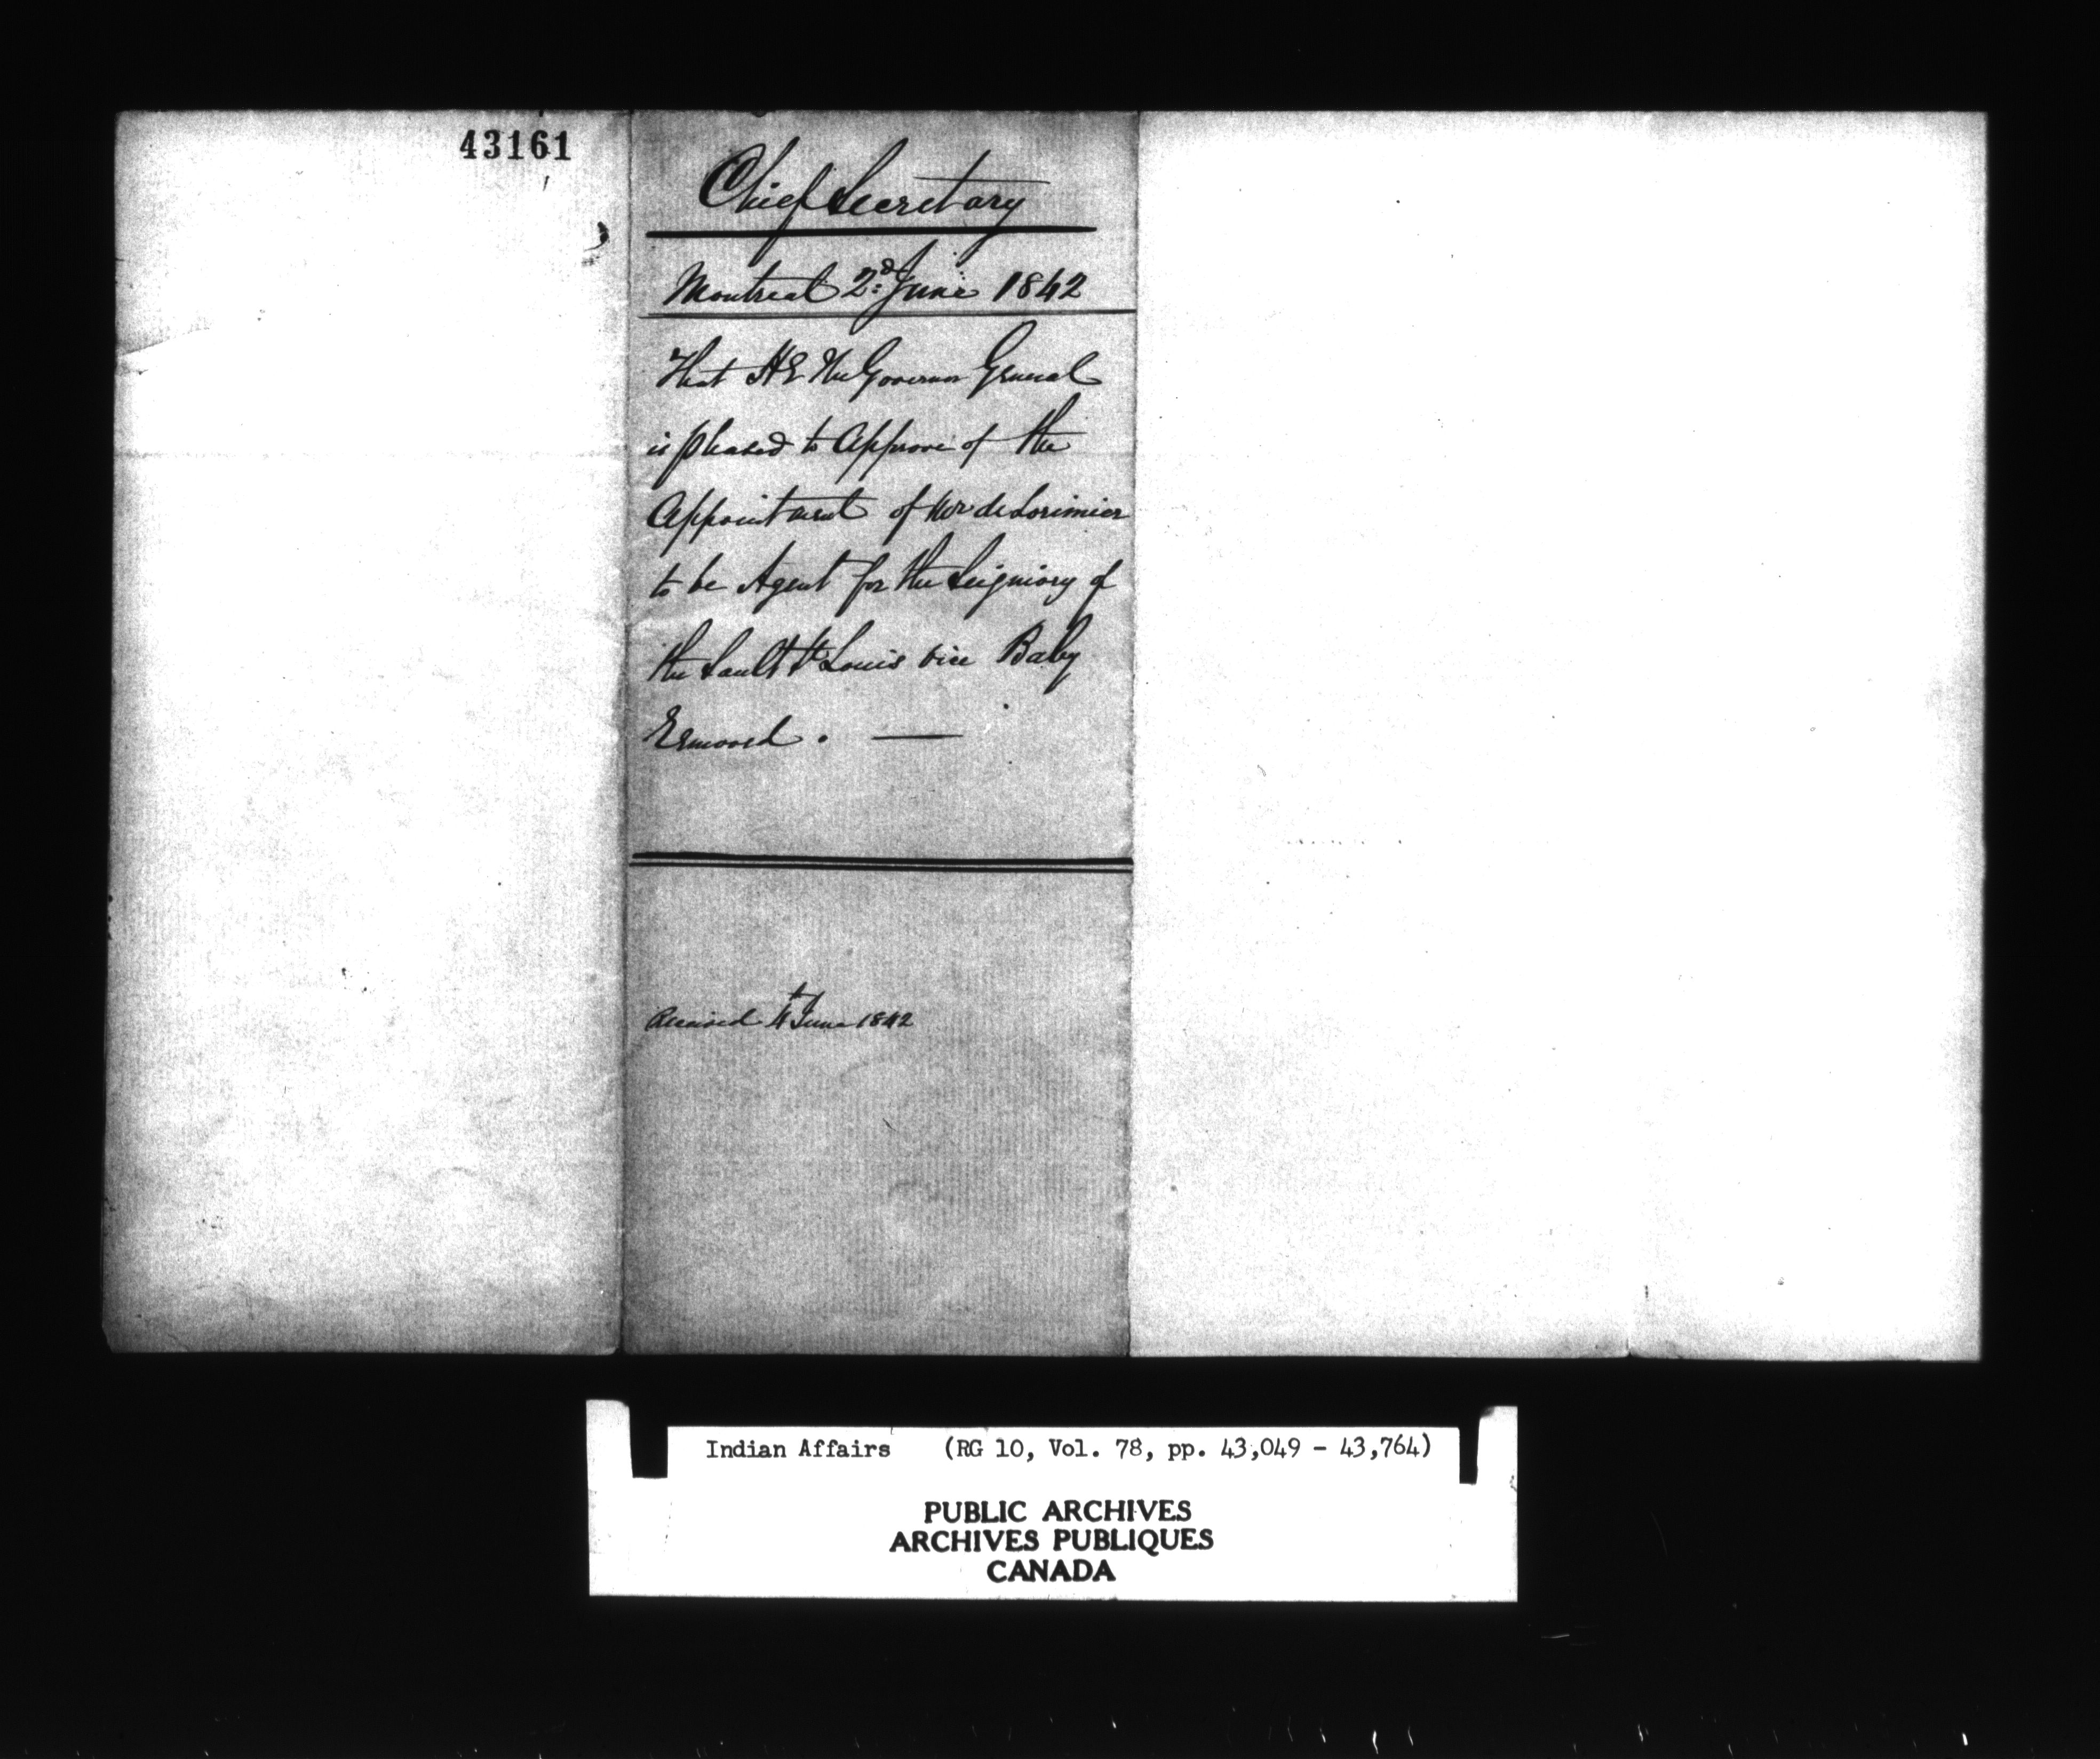 43161
Chief Secretary
Montreal 2d June 1842
That H E The Governor General
is pleased to Approve of the
Appointment of Mr de Lorimier
to be Agent for the Seigniory of
the Sault St Louis vice Baby
Removed. —
Received 4th June 1842
Indian Affairs (RG 10, Vol. 78, pp. 43,049 - 43,764)
PUBLIC ARCHIVES
ARCHIVES PUBLIQUES
CANADA